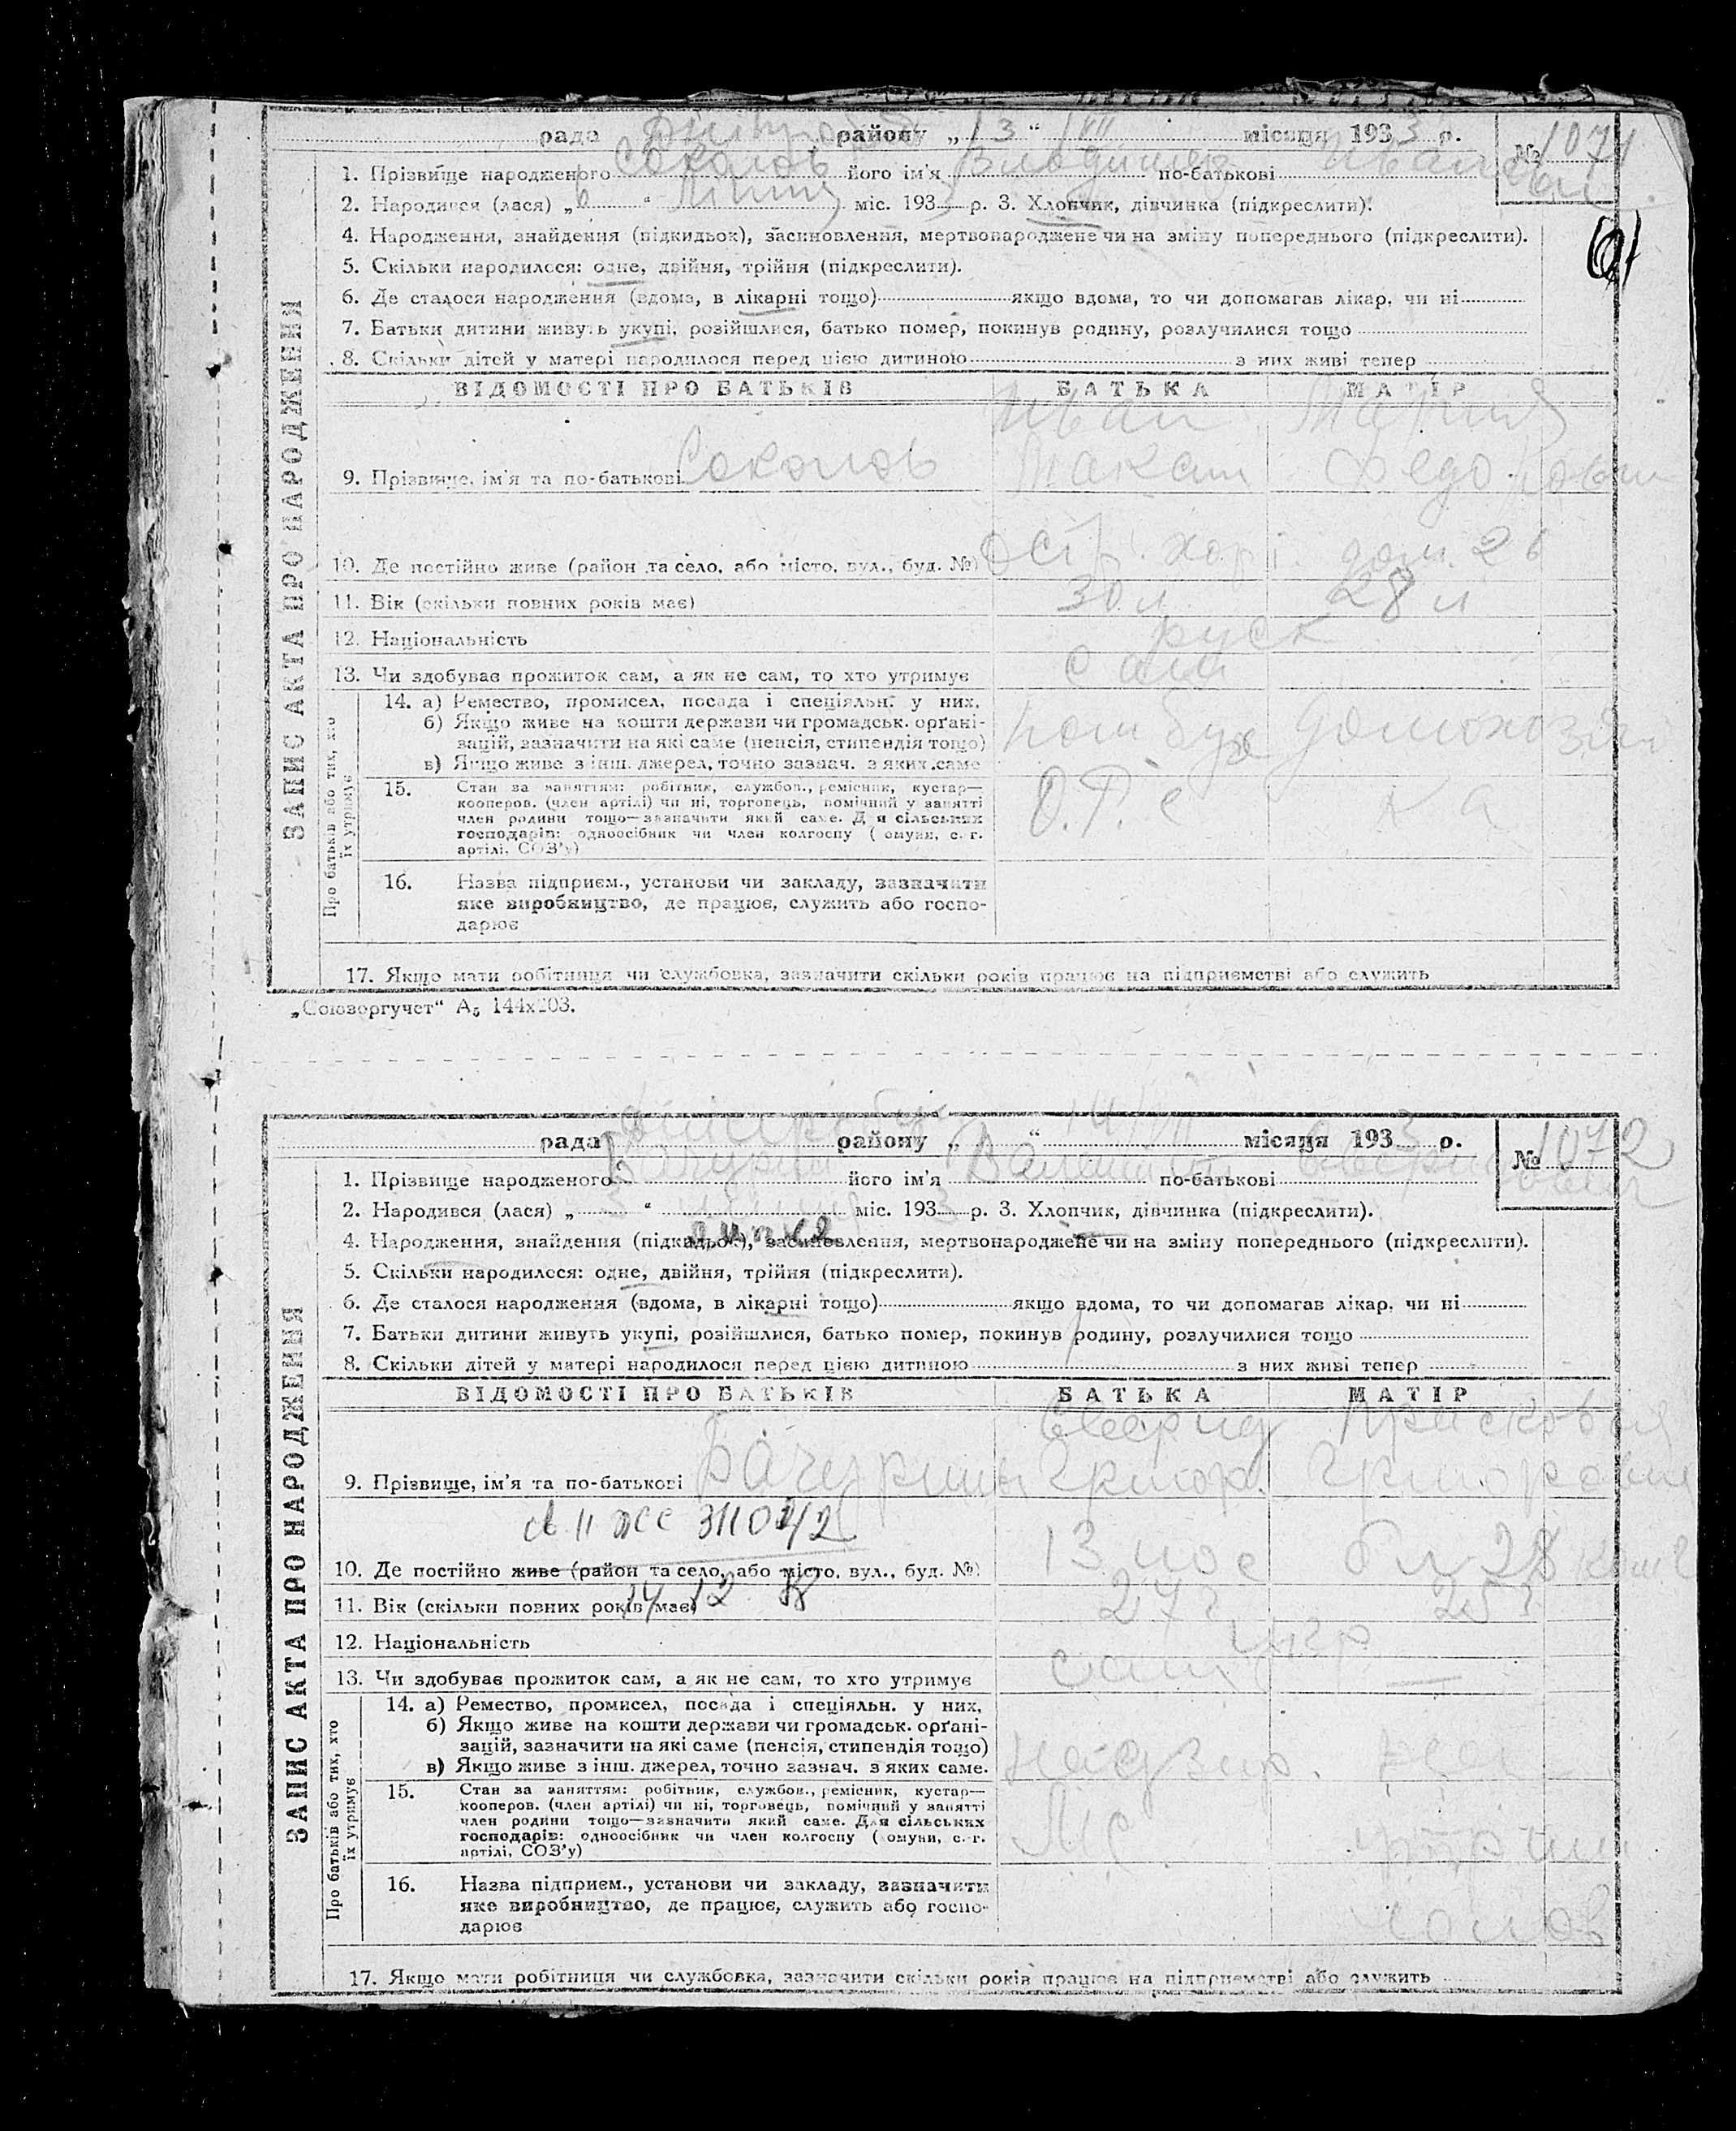 рада району „13“ VII місяця 1933 р.
№ 1071
1. Прізвище народженого Соколов його ім'я Владимир по-батькові Иванович
2. Народився (лася) „6“ міс. 1933 р. 3. Хлопчик, дівчинка (підкреслити).
61
4. Народження, знайдення (підкидьок), засиновлення, мертвонароджене чи на зміну попереднього (підкреслити).
5. Скільки народилося: одне, двійня, трійня (підкреслити).
6. Де сталося народження (вдома, в лікарні тощо) якщо вдома, то чи допомагав лікар, чи ні
7. Батьки дитини живуть укупі, розійшлися, батько помер, покинув родину, розлучилися тощо
8. Скільки дітей у матері народилося перед цією дитиною з них живі тепер
ЗАПИС АКТА ПРО НАРОДЖЕННЯ
ВІДОМОСТІ ПРО БАТЬКІВ БАТЬКА МАТІР
Иван Мария
9. Прізвище, ім'я та по-батькові Соколов Макаш Федоровна
10. Де постійно живе (район та село, або місто, вул., буд. №) Остр. хорт. дом. 26
11. Вік (скільки повних років має) 30 л 28 л
12. Національність руск
13. Чи здобуває прожиток сам, а як не сам, то хто утримує сам
Про батьків або тих, хто їх утримує
14. а) Ремество, промисел, посада і спеціяльн. у них.
б) Якщо живе на кошти держави чи громадськ. орґані-
зацій, зазначити на які саме (пенсія, стипендія тощо) домохозяй
в) Якщо живе з інш. джерел, точно зазнач. з яких саме
15. Стан за заняттям: робітник, службов., ремісник, кустар—
кооперов. (член артілі) чи ні, торговець, помічний у занятті
член родини тощо—зазначити який саме. Для сільських
господарів: одноосібник чи член колгоспу (комуни, с.-г.
артілі, СОЗ'у)
16. Назва підприєм., установи чи закладу, зазначити
яке виробництво, де працює, служить або госпо-
дарює
17. Якщо мати робітниця чи службовка, зазначити скільки років працює на підприємстві або служить
„Союзоргучет“ А5 144х203.
рада району „ “ 14/VII місяця 1933 р.
№ 1072
1. Прізвище народженого його ім'я по-батькові
2. Народився (лася) „3“ міс. 1933 р. 3. Хлопчик, дівчинка (підкреслити).
липня
4. Народження, знайдення (підкидьок), засиновлення, мертвонароджене чи на зміну попереднього (підкреслити).
5. Скільки народилося: одне, двійня, трійня (підкреслити).
6. Де сталося народження (вдома, в лікарні тощо) якщо вдома, то чи допомагав лікар, чи ні
7. Батьки дитини живуть укупі, розійшлися, батько помер, покинув родину, розлучилися тощо
8. Скільки дітей у матері народилося перед цією дитиною з них живі тепер
ЗАПИС АКТА ПРО НАРОДЖЕННЯ
ВІДОМОСТІ ПРО БАТЬКІВ БАТЬКА МАТІР
Сверид Прасковья
9. Прізвище, ім'я та по-батькові Бачурины Григор. Григоровна
II ЖС 311042
10. Де постійно живе (район та село, або місто, вул., буд. №) 13 пос бл 28
14 12
11. Вік (скільки повних років має) 27 25
12. Національність укр
13. Чи здобуває прожиток сам, а як не сам, то хто утримує сам —
Про батьків або тих, хто їх утримує
14. а) Ремество, промисел, посада і спеціяльн. у них.
б) Якщо живе на кошти держави чи громадськ. орґані-
зацій, зазначити на які саме (пенсія, стипендія тощо)
в) Якщо живе з інш. джерел, точно зазнач. з яких саме.
15. Стан за заняттям: робітник, службов., ремісник, кустар—
кооперов. (член артілі) чи ні, торговець, помічний у занятті
член родини тощо—зазначити який саме. Для сільських
господарів: одноосібник чи член колгоспу (комуни, с.-г.
артілі, СОЗ'у)
16. Назва підприєм., установи чи закладу, зазначити
яке виробництво, де працює, служить або госпо-
дарює
17. Якщо мати робітниця чи службовка, зазначити скільки років працює на підприємстві або служить